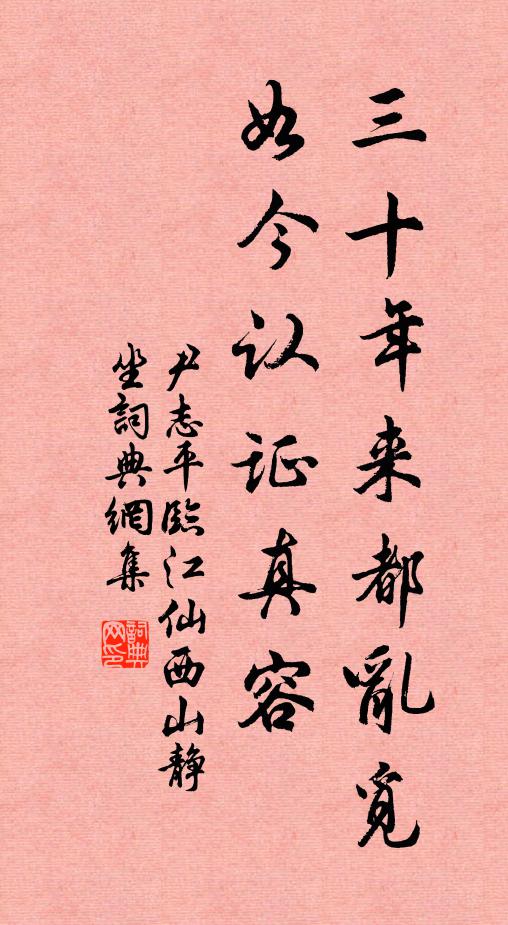 三十年来都亂覓
如今认证真容
尹志平臨江仙西山静
坐詞典網集
詞典网印